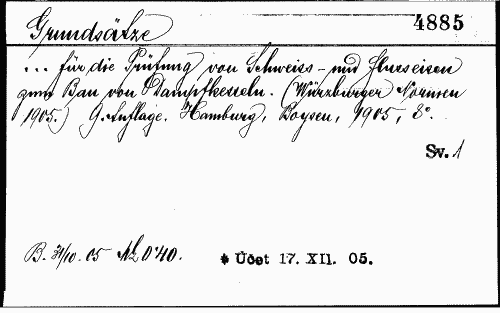 Grundsätze 4885
... für die Prüfung von Schweiss- und Flusseisen
zum Bau von Dampfkesseln. (Würzburger Normen
1905.) 9. Auflage. Hamburg, Boysen, 1905, 8°.
Sv. 1
B. 31/10. 05 M 0·40. * Účet 17. XII. 05.